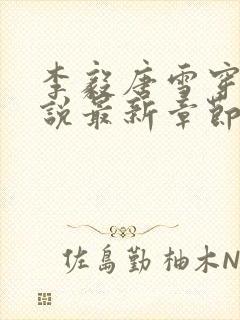 李毅唐雪穿
說最新章節
佐島勤 柚木N